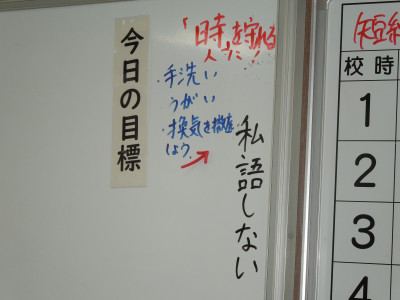 今日の目標
「時を守れる
人に!
手洗い
うがい
換気を徹底
しよう
私語しない
短縮
校時
1
2
3
4